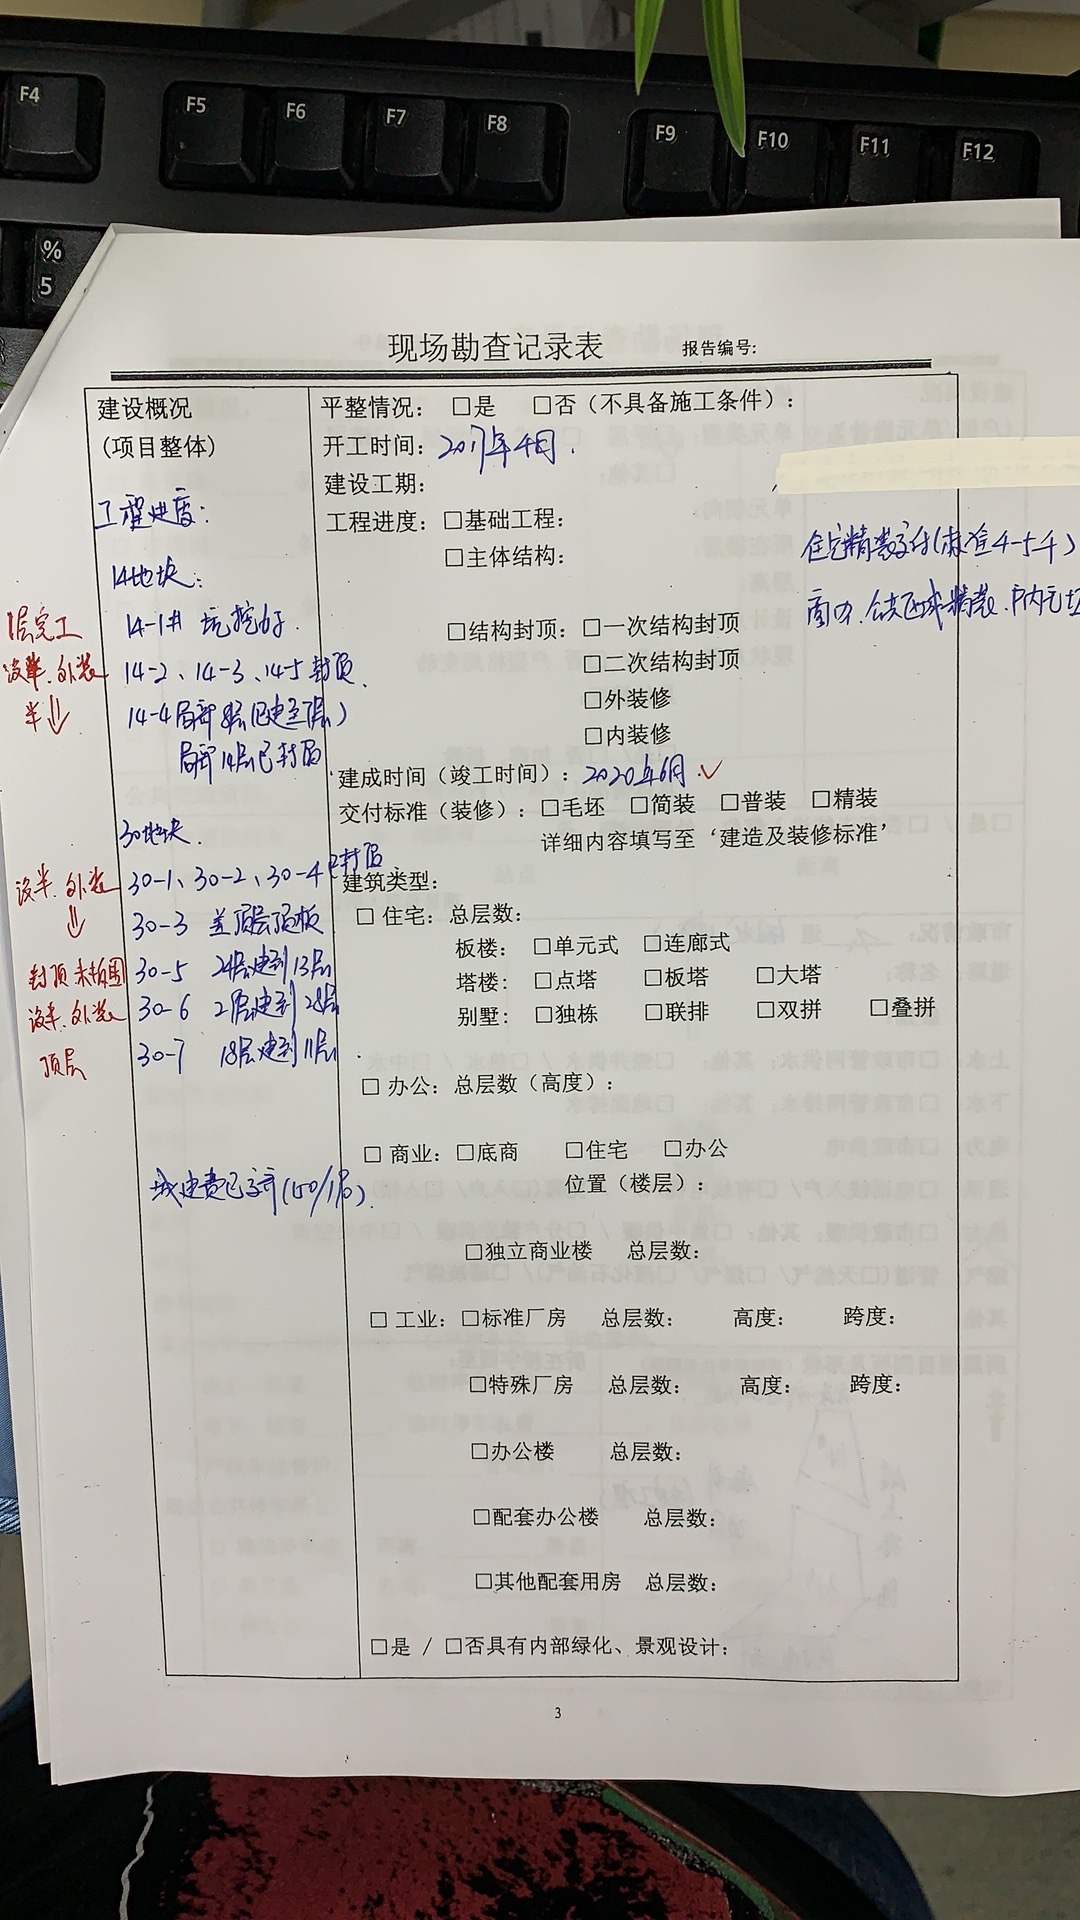 F4
F5
F6
F7
F8
F9
F10
F11
F12
%
5
现场勘查记录表 报告编号:
建设概况
(项目整体)
工程进度:
14地块:
14-1# 坑挖好.
14-2、14-3、14-5 封顶.
14-4局部 层(已建至顶层)
局部14层已封顶
30地块.
30-1、30-2、30-4已封顶
30-3 盖顶层顶板
30-5 24层建到13层
30-6 2 层建到28层
30-7 18层建到11层.
城建费已交齐( ).
1层完工
外装
半
外装
封顶未
外装
顶层
平整情况: □是 □否(不具备施工条件):
开工时间: 2017年4月.
建设工期:
工程进度: □基础工程:
□主体结构:
□结构封顶: □一次结构封顶
□二次结构封顶
□外装修
□内装修
住宅精装交付(标准4-5千)
商办.公共区域精装.户内毛坯
建成时间(竣工时间): 2020年6月. ✓
交付标准(装修): □毛坯 □简装 □普装 □精装
详细内容填写至‘建造及装修标准’
建筑类型:
□ 住宅: 总层数:
板楼: □单元式 □连廊式
塔楼: □点塔 □板塔 □大塔
别墅: □独栋 □联排 □双拼 □叠拼
□ 办公: 总层数(高度):
□ 商业: □底商 □住宅 □办公
位置(楼层):
□独立商业楼 总层数:
□ 工业: □标准厂房 总层数: 高度: 跨度:
□特殊厂房 总层数: 高度: 跨度:
□办公楼 总层数:
□配套办公楼 总层数:
□其他配套用房 总层数:
□是 / □否具有内部绿化、景观设计:
3